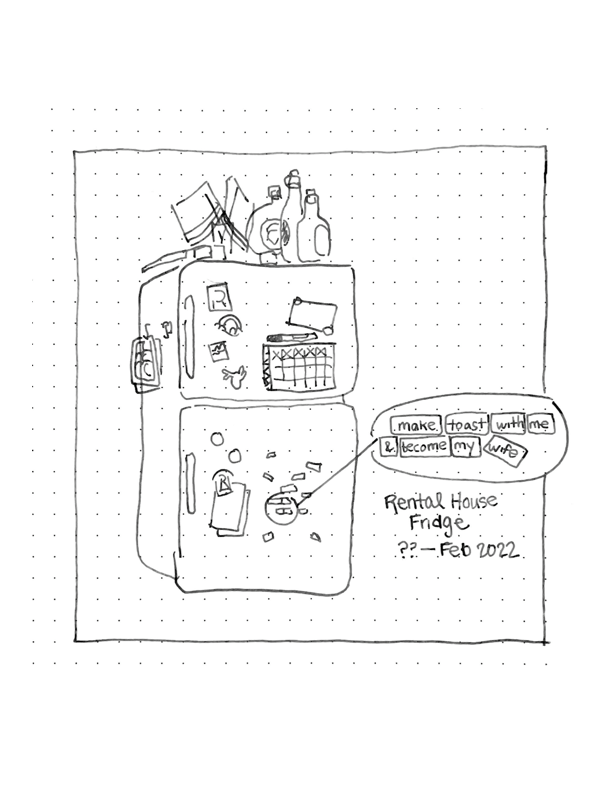 R
make toast with me
& become my wife
R
Rental House
Fridge
?? — Feb 2022